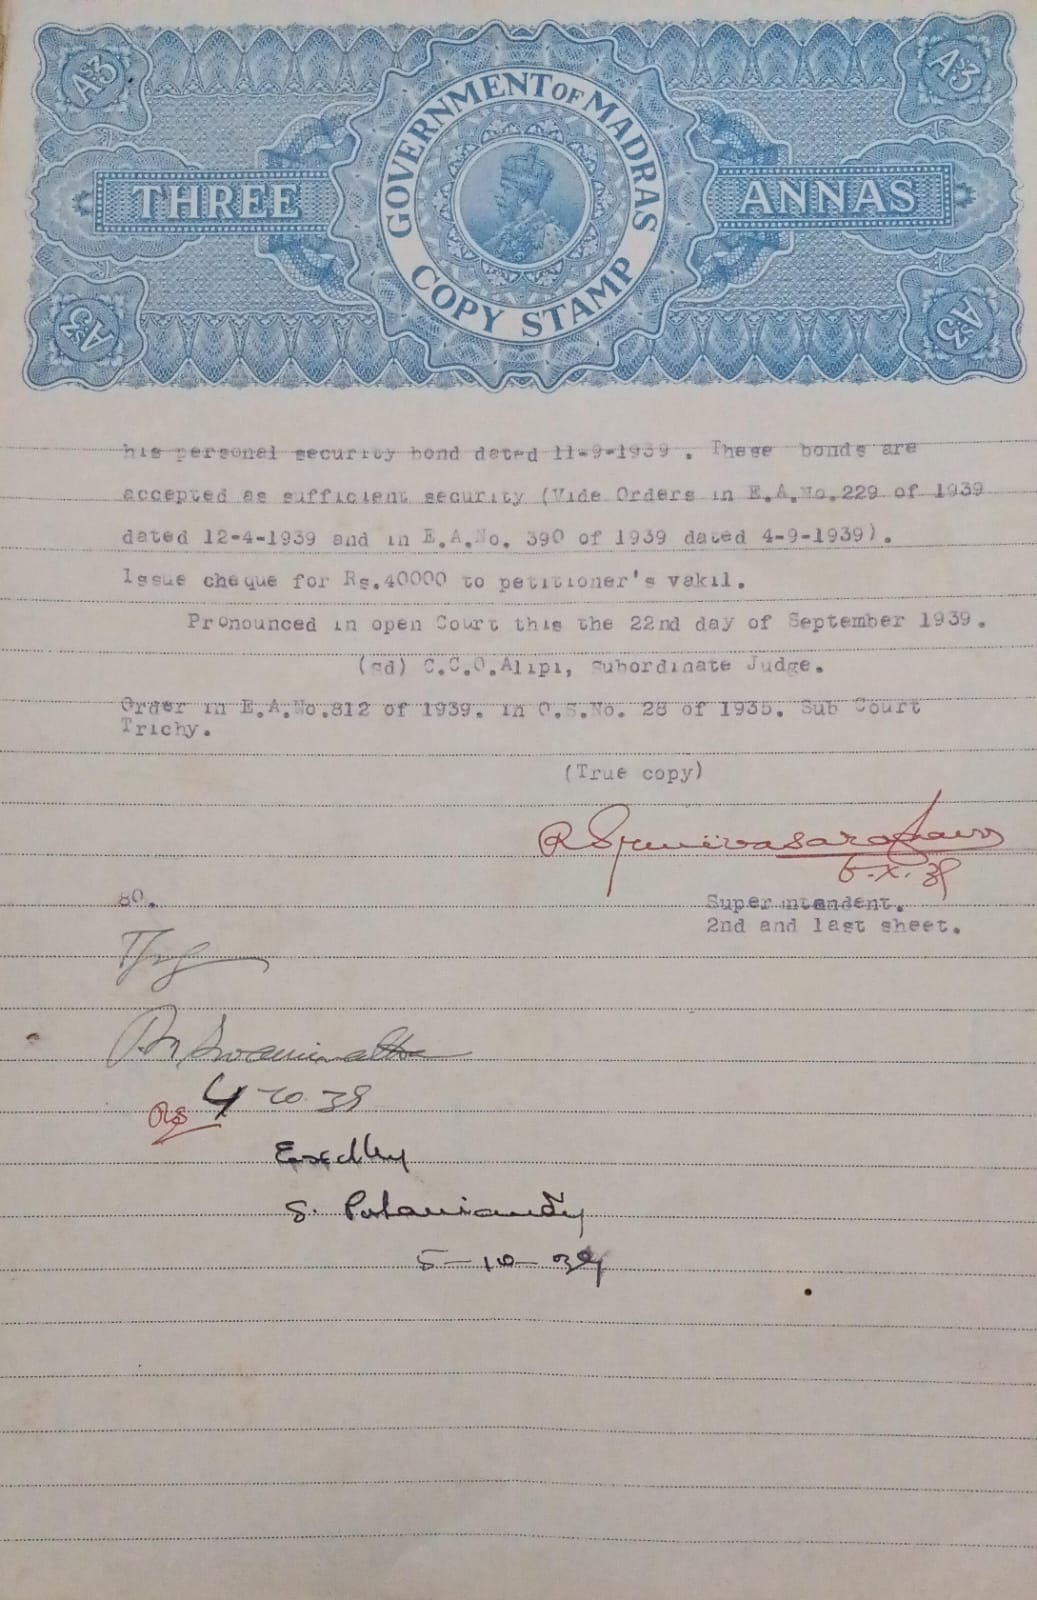 As3
As3
GOVERNMENT OF MADRAS
THREE
ANNAS
COPY STAMP
As3
As3
his personal security bond dated 11-9-1939 . These bonds are
accepted as sufficient security (Vide Orders in E.A.No.229 of 1939
dated 12-4-1939 and in E.A.No. 390 of 1939 dated 4-9-1939).
Issue cheque for Rs.40000 to petitioner's vakil.
Pronounced in open Court this the 22nd day of September 1939.
(sd) C.C.O.Alipi, Subordinate Judge.
Order in E.A.No.812 of 1939. in O.S.No. 28 of 1935. Sub Court
Trichy.
(True copy)
5.X.39
80.
Superintendent.
2nd and last sheet.
S.
5-10-39